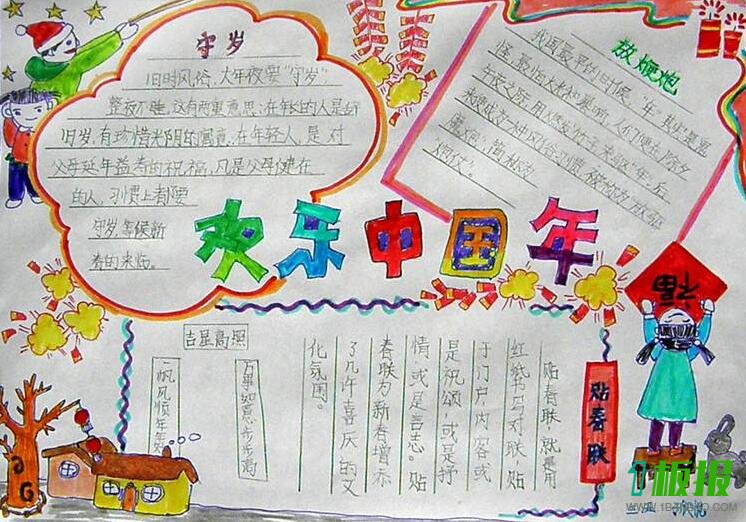 守岁
旧时风俗,大年夜要“守岁”
整夜不睡,这有两重意思:在年长的人是辞
旧岁,有珍惜光阴的寓意,在年轻人,是对
父母延年益寿的祝福,凡是父母健在
的人,习惯上都要
守岁,等候新
春的来临。
放鞭炮
我国最早的时候,“年”其实是鬼
怪,最怕火光和暴响,人们便在除夕
年夜之际,用爆竹
欢乐中国年
贴春联
贴春联,就是用
红纸书写对联贴
于门户内容或
是祝颂,或是抒
情,或是言志。贴
春联为新春增添
了几许喜庆的文
化氛围。
吉星高照
万事如意步步高
一帆风顺年年
福
板报
WWW.1BANBAO.COM